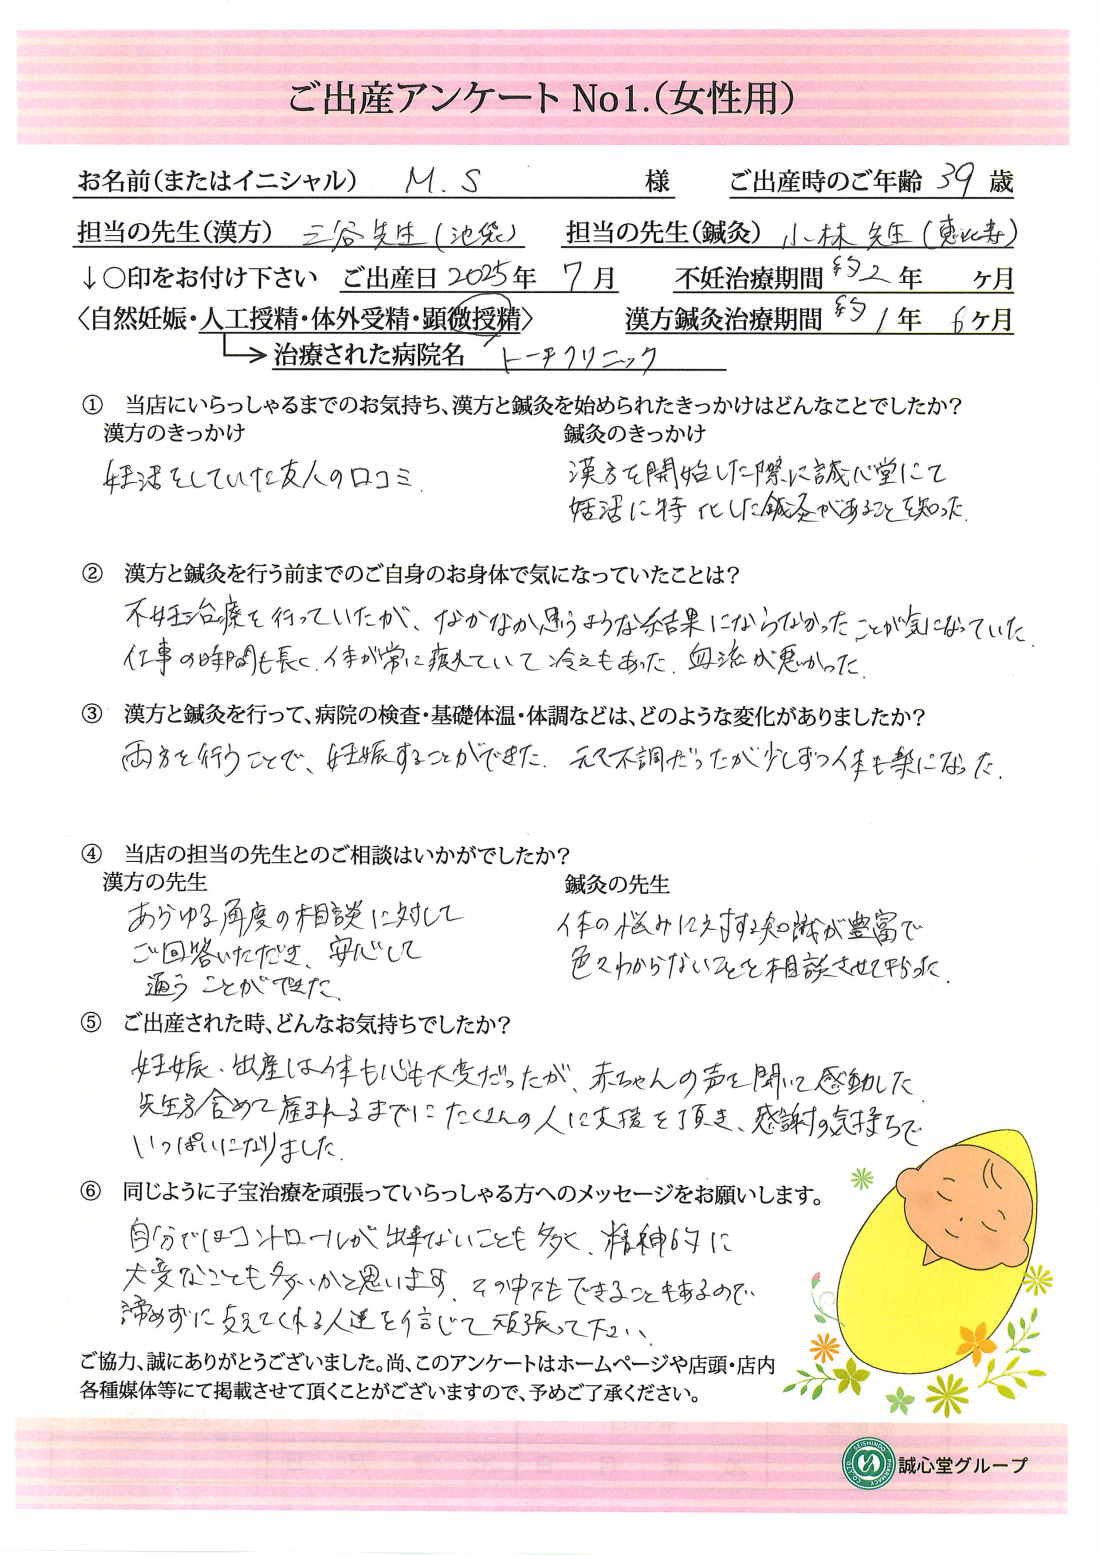 ご出産アンケート No1.(女性用)
お名前(またはイニシャル) M.S 様 ご出産時のご年齢 39 歳
担当の先生(漢方) 三谷先生(池袋) 担当の先生(鍼灸) 小林先生(恵比寿)
↓○印をお付け下さい ご出産日 2025年 7月 不妊治療期間 約2年 ヶ月
〈自然妊娠・人工授精・体外受精・顕微授精〉 漢方鍼灸治療期間 約1年 6ヶ月
治療された病院名 トーチクリニック
① 当店にいらっしゃるまでのお気持ち、漢方と鍼灸を始められたきっかけはどんなことでしたか?
漢方のきっかけ
妊活をしていた友人の口コミ.
鍼灸のきっかけ
漢方を開始した際に誠心堂にて
妊活に特化した鍼灸があることを知った.
② 漢方と鍼灸を行う前までのご自身のお身体で気になっていたことは?
不妊治療を行っていたが、なかなか思うような結果にならなかったことが気になっていた.
仕事の時間も長く、体が常に疲れていて冷えもあった. 血流が悪かった.
③ 漢方と鍼灸を行って、病院の検査・基礎体温・体調などは、どのような変化がありましたか?
両方を行うことで、妊娠することができた. 元々不調だったが少しずつ体も楽になった.
④ 当店の担当の先生とのご相談はいかがでしたか?
漢方の先生
あらゆる角度の相談に対して
ご回答いただき、安心して
通うことができた、
鍼灸の先生
体の悩みに対する知識が豊富で
色々わからないことを相談させて頂った.
⑤ ご出産された時、どんなお気持ちでしたか?
妊娠、出産は体も心も大変だったが、赤ちゃんの声を聞いて感動した.
先生方含めて産まれるまでにたくさんの人に支援を頂き、感謝の気持ちで
いっぱいになりました.
⑥ 同じように子宝治療を頑張っていらっしゃる方へのメッセージをお願いします。
自分ではコントロールが出来ないことも多く、精神的に
大変なことも多いかと思います. その中でもできることもあるので
諦めずに支えてくれる人達を信じて頑張って下さい.
ご協力、誠にありがとうございました。尚、このアンケートはホームページや店頭・店内
各種媒体等にて掲載させて頂くことがございますので、予めご了承ください。
SEISHINDO PHARMACY CO.,LTD.
誠心堂グループ